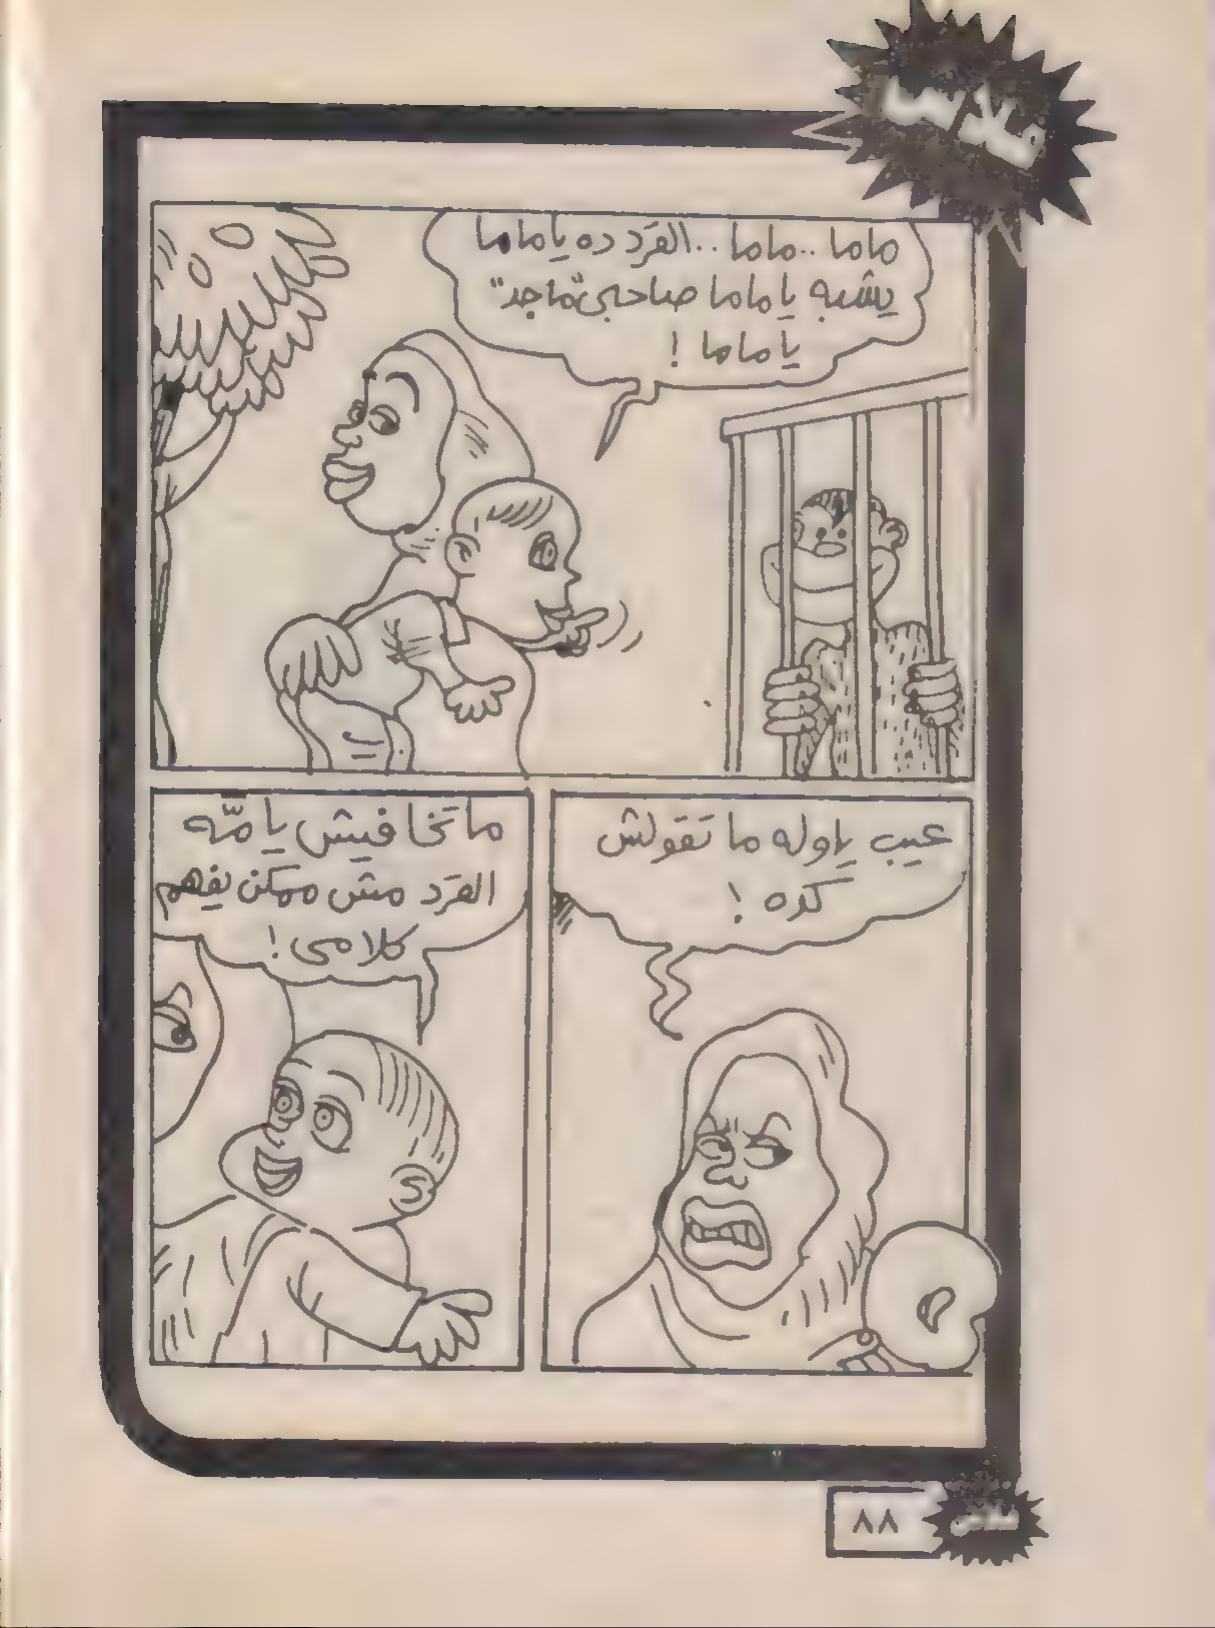 فلاش
ماما..ماما..القرد ده ياماما
يشبه ياماما صاحبى "ماجد"
ياماما !
عيب ياوله ما تقولش
كده !
ما تخافيش يا مّه
القرد مش ممكن يفهم
كلامى !
٨٨
فلاش